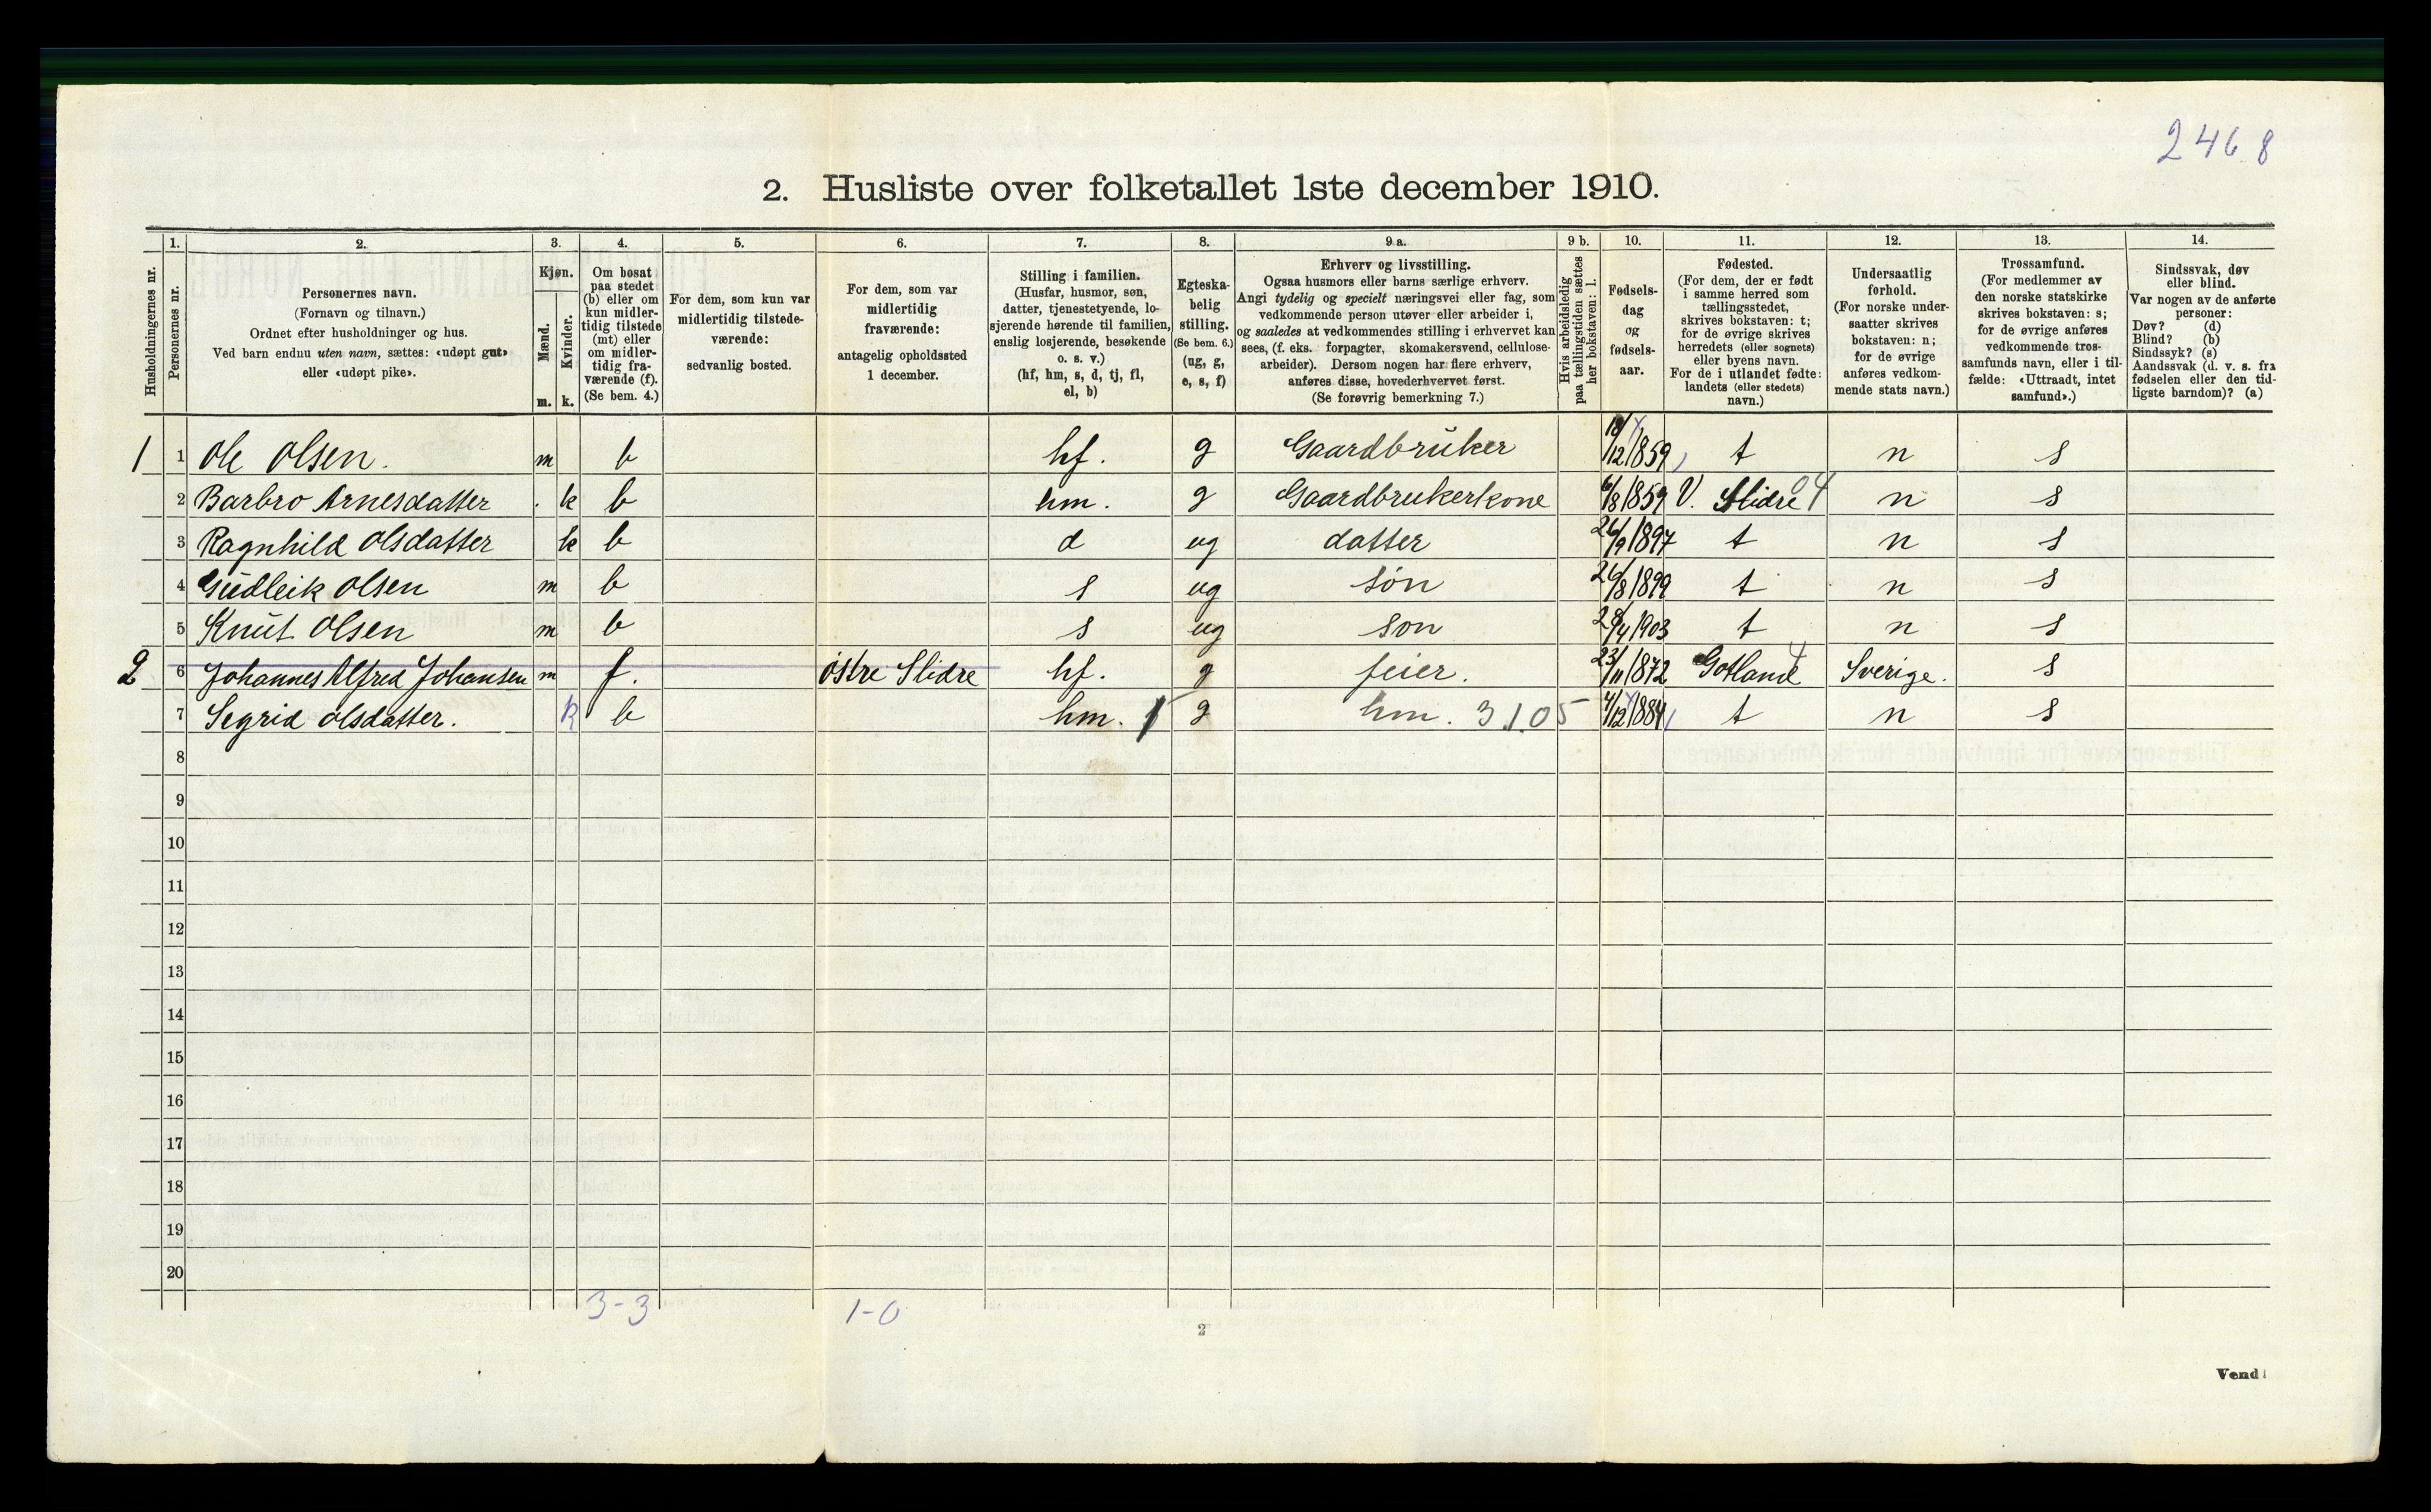 2468
2. Husliste over folketallet 1ste december 1910.
Husholdningernes nr.
1. Personernes nr.
2. Personernes navn.
(Fornavn og tilnavn.)
Ordnet efter husholdninger og hus.
Ved barn endnu uten navn, sættes: «udøpt gut»
eller «udøpt pike».
3. Kjøn.
Mænd. m.
Kvinder. k.
4. Om bosat
paa stedet
(b) eller om
kun midler-
tidig tilstede
(mt) eller
om midler-
tidig fra-
værende (f).
(Se bem. 4.)
5. For dem, som kun var
midlertidig tilstede-
værende:
sedvanlig bosted.
6. For dem, som var
midlertidig
fraværende:
antagelig opholdssted
1 december.
7. Stilling i familien.
(Husfar, husmor, søn,
datter, tjenestetyende, lo-
sjerende hørende til familien,
enslig losjerende, besøkende
o. s. v.)
(hf, hm, s, d, tj, fl,
el, b)
8. Egteska-
belig
stilling.
(Se bem. 6.)
(ug, g,
e, s, f)
9 a. Erhverv og livsstilling.
Ogsaa husmors eller barns særlige erhverv.
Angi tydelig og specielt næringsvei eller fag, som
vedkommende person utøver eller arbeider i,
og saaledes at vedkommendes stilling i erhvervet kan
sees, (f. eks. forpagter, skomakersvend, cellulose-
arbeider). Dersom nogen har flere erhverv,
anføres disse, hovederhvervet først.
(Se forøvrig bemerkning 7.)
9 b. Hvis arbeidsledig
paa tællingstiden sættes
her bokstaven: l.
10. Fødsels-
dag
og
fødsels-
aar.
11. Fødested.
(For dem, der er født
i samme herred som
tællingsstedet,
skrives bokstaven: t;
for de øvrige skrives
herredets (eller sognets)
eller byens navn.
For de i utlandet fødte:
landets (eller stedets)
navn.)
12. Undersaatlig
forhold.
(For norske under-
saatter skrives
bokstaven: n;
for de øvrige
anføres vedkom-
mende stats navn.)
13. Trossamfund.
(For medlemmer av
den norske statskirke
skrives bokstaven: s;
for de øvrige anføres
vedkommende tros-
samfunds navn, eller i til-
fælde: «Uttraadt, intet
samfund».)
14. Sindssvak, døv
eller blind.
Var nogen av de anførte
personer:
Døv? (d)
Blind? (b)
Sindssyk? (s)
Aandssvak (d. v. s. fra
fødselen eller den tid-
ligste barndom)? (a)
1 1 Ole Olsen. m b hf. g Gaardbruker 18/12 1859 t n s
2 Barbro Arnesdatter k b hm. g Gaardbrukerkone 6/8 1859 V. Slidre 04 n s
3 Ragnhild Olsdatter k b d ug datter 26/9 1897 t n s
4 Gudleik Olsen m b s ug søn 26/8 1899 t n s
5 Knut Olsen m b s ug son 28/4 1903 t n s
2 6 Johannes Alfred Johansen m f. østre Slidre hf. g feier. 23/11 1872 Gotland Sverige. s
7 Segrid Olsdatter. k b hm. 1 g hm. 3.1.05 4/12 1884 t n s
8
9
10
11
12
13
14
15
16
17
18
19
20
3-3 1-0
2
Vend!